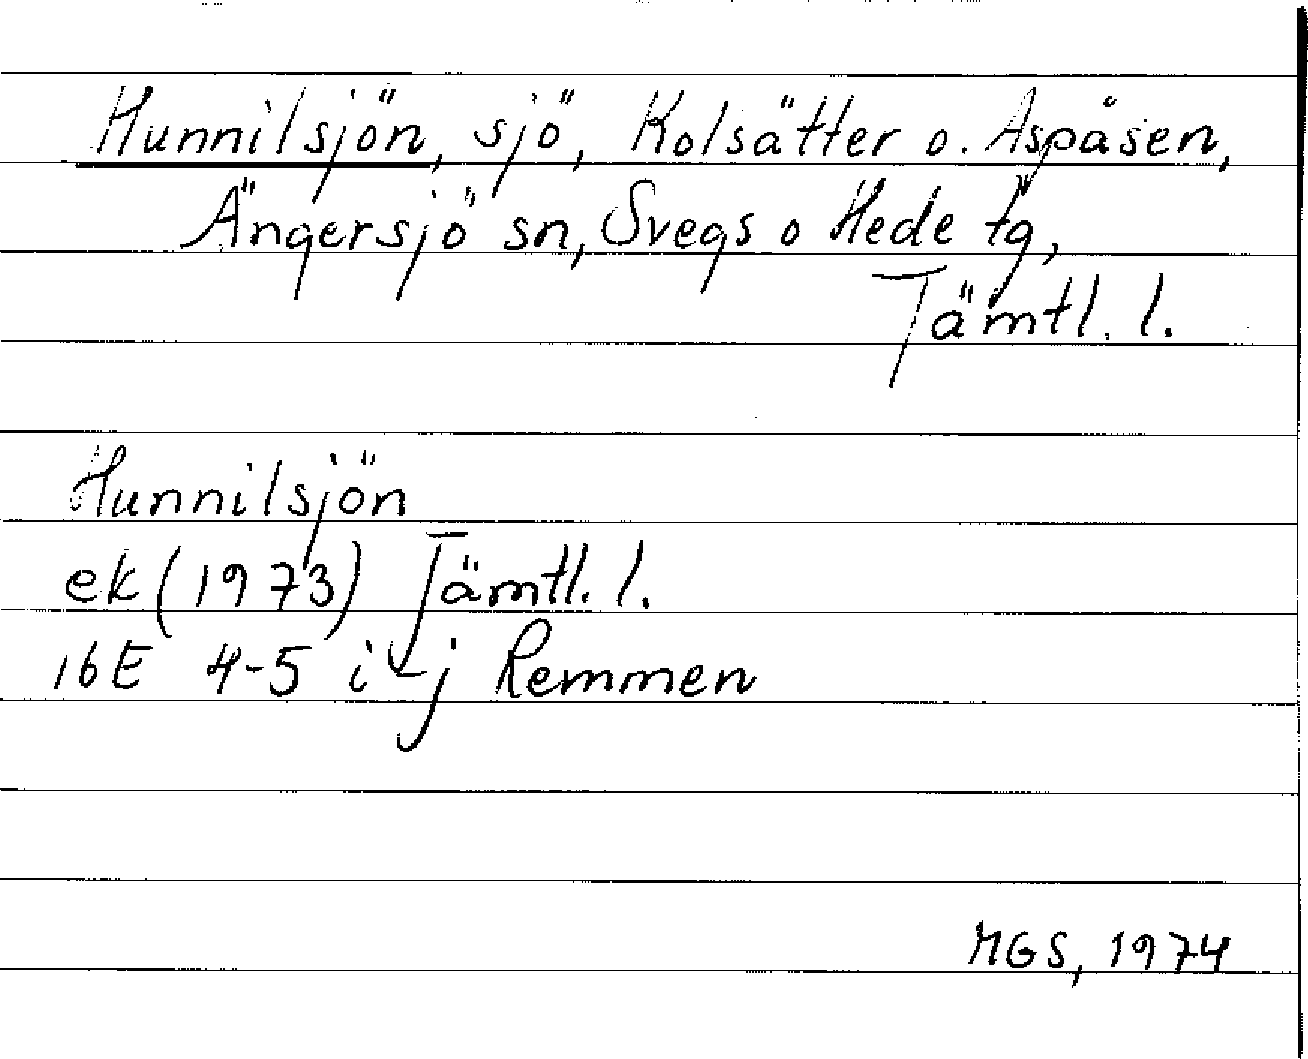 Hunnilsjön, sjö, Kolsätter o. Aspåsen,
Ängersjö sn, Svegs o Hede tg,
Jämtl. l.
Hunnilsjön
ek (1973) Jämtl. l.
16E 4-5 i-j Remmen
MGS, 1974